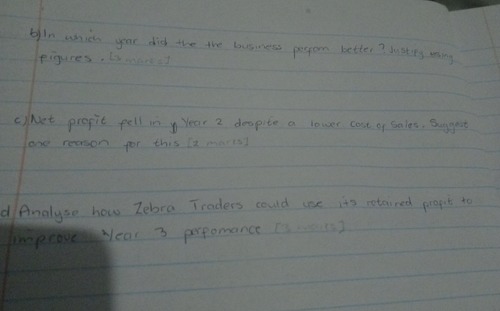 b) In which year did the the business perform better? Justify using
figures. [2 marks]
c) Net profit fell in Year 2 despite a lower cost of sales. Suggest
one reason for this [2 marks]
d Analyse how Zebra Traders could use its retained profit to
improve Year 3 perfomance [3 marks]